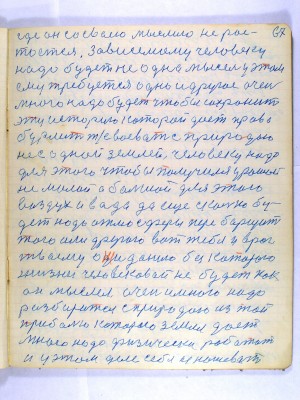 67
где он со своею мыслию не рас-
тостся. Зависемому человеку
надо будет не одна мысел у этом
ему требуется одно и другое очен
много надо будет чтобы сохранит
эту историю которой дает право
бурлит и своеват с природою
не с одной землей, человеку надо
для этого чтобы получился урожай
не малой а балшой для этого
воздух и вада да еще скажу бу-
дет надо атмосферы
того или другого вот тебе и враг
твоему ожиданию без катарого
жизни человеческой не будет как
он мыслел очен много надо
разбиратся с природою из той
прибалю которого земля дает
много надо физически работат
и у этом деле себя